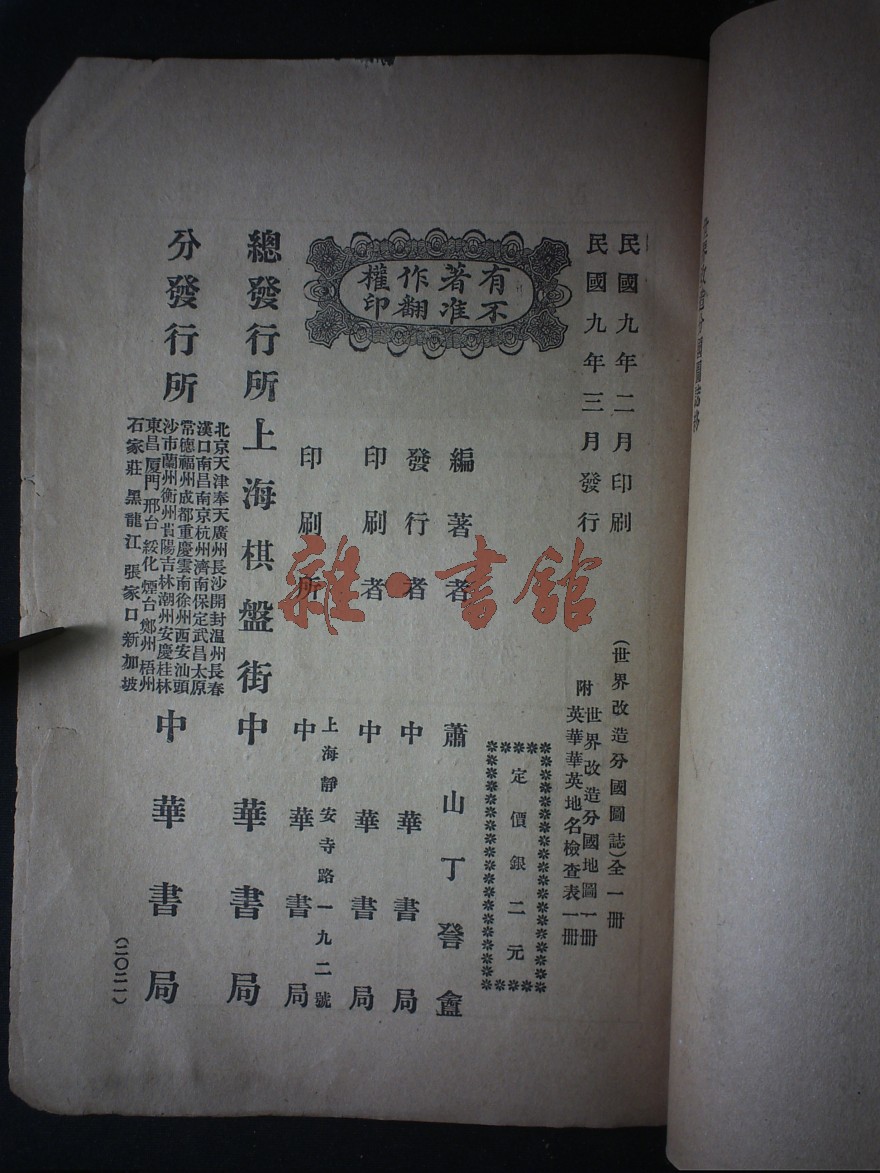 民國九年二月印刷
民國九年三月發行
有著作權
不准翻印
(世界改造分國圖誌)全一冊
附
世界改造分國地圖一冊
英華華英地名檢查表一冊
定價銀二元
編著者 蕭山丁詧盦
發行者 中華書局
印刷者 中華書局
上海靜安寺路一九二號
印刷所 中華書局
總發行所 上海棋盤街 中華書局
分發行所
北京天津奉天廣州長沙開封温州長春
漢口南昌南京杭州濟南保定武昌太原
常德福州成都重慶雲南徐州西安汕頭
沙市蘭州衡州貴陽吉林潮州安慶桂林
東昌廈門邢台綏化煙台鄭州梧州
石家莊黑龍江張家口新加坡
中華書局
(二〇二一)
雜·書館